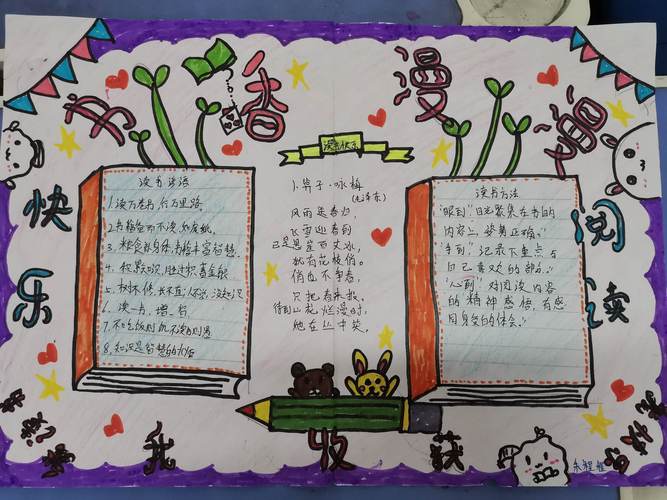 书香漫
快乐
阅读
读书谚语
1.读万卷书,行万里路。
2.书籍备而不读如废纸。
3.粮食补身体,书籍丰富智慧。
4.积累知识,胜过积蓄金银
5.树不修,长不直;人不学,没知识
6.读一书,增一智
7.不吃饭则饥,不读书则愚
8.知识是智慧的火炬
读书快乐
卜算子·咏梅
(毛泽东)
风雨送春归,
飞雪迎春到
已是悬崖百丈冰,
犹有花枝俏。
俏也不争春,
只把春来报。
待到山花烂漫时,
她在丛中笑。
读书方法
"眼到":目光聚集在书的
内容上,姿势正确。
"手到":记录下重点与
自己喜欢的部分。
"心到":对阅读内容
的精神感悟,有感
同身受的体会。"
我收获